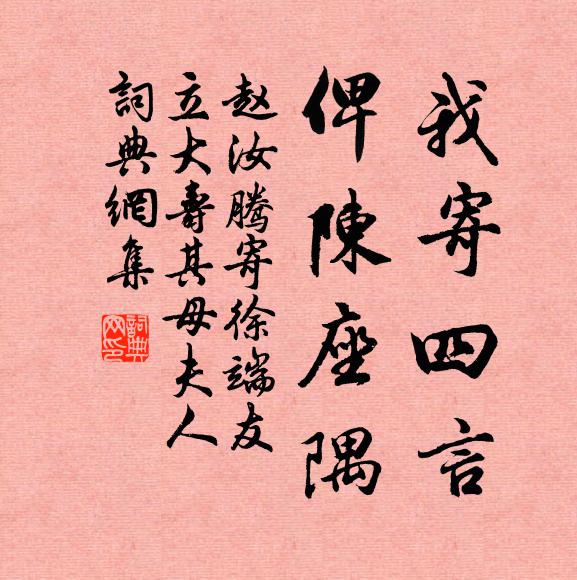 我寄四言
俾陳座隅
赵汝騰寄徐端友
立大壽其母夫人
詞典網集
詞典网印